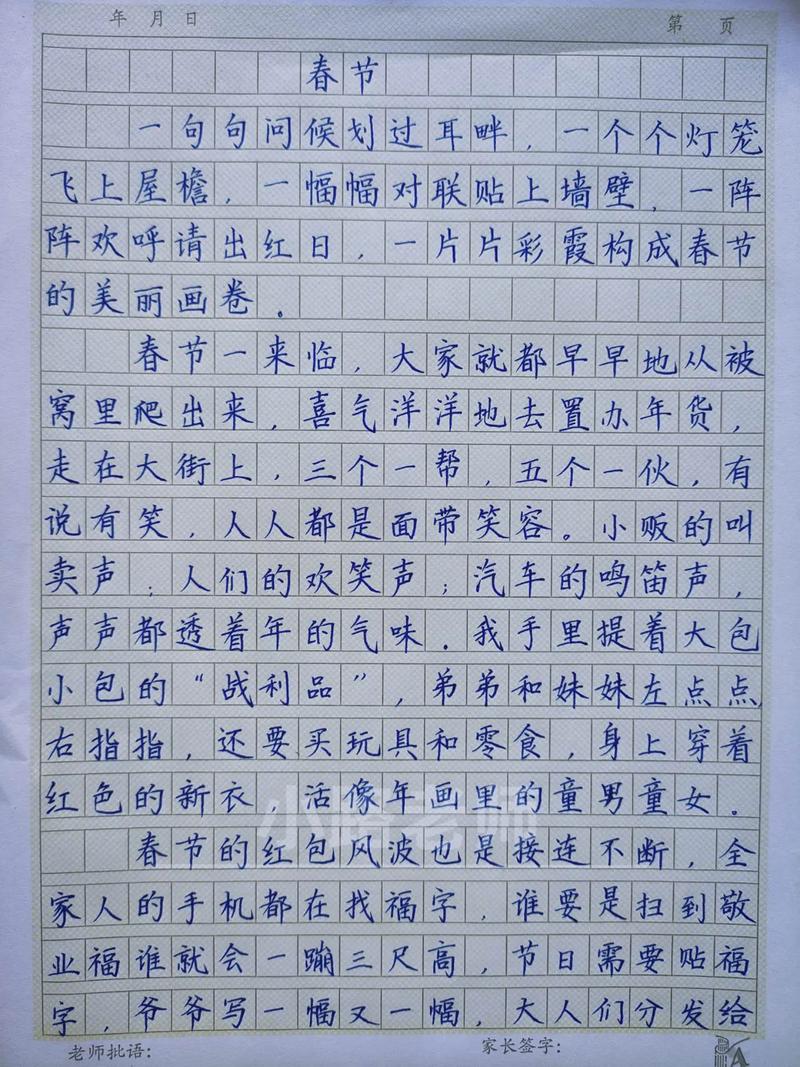 年 月 日 第 页
春节
一句句问候划过耳畔，一个个灯笼
飞上屋檐，一幅幅对联贴上墙壁，一阵
阵欢呼请出红日，一片片彩霞构成春节
的美丽画卷。
春节一来临，大家就都早早地从被
窝里爬出来，喜气洋洋地去置办年货，
走在大街上，三个一帮，五个一伙，有
说有笑，人人都是面带笑容。小贩的叫
卖声；人们的欢笑声；汽车的鸣笛声，
声声都透着年的气味．我手里提着大包
小包的“战利品”，弟弟和妹妹左点点
右指指，还要买玩具和零食，身上穿着
红色的新衣 活像年画里的童男童女．
春节的红包风波也是接连不断，全
家人的手机都在找福字，谁要是扫到敬
业福谁就会一蹦三尺高，节日需要贴福
字，爷爷写一幅又一幅，大人们分发给
老师批语： 家长签字：
小路老师